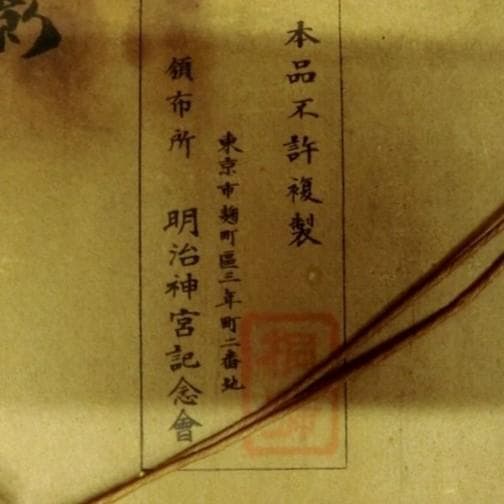 本品不許複製
東京市麹町區三年町二番地
頒布所 明治神宮記念會